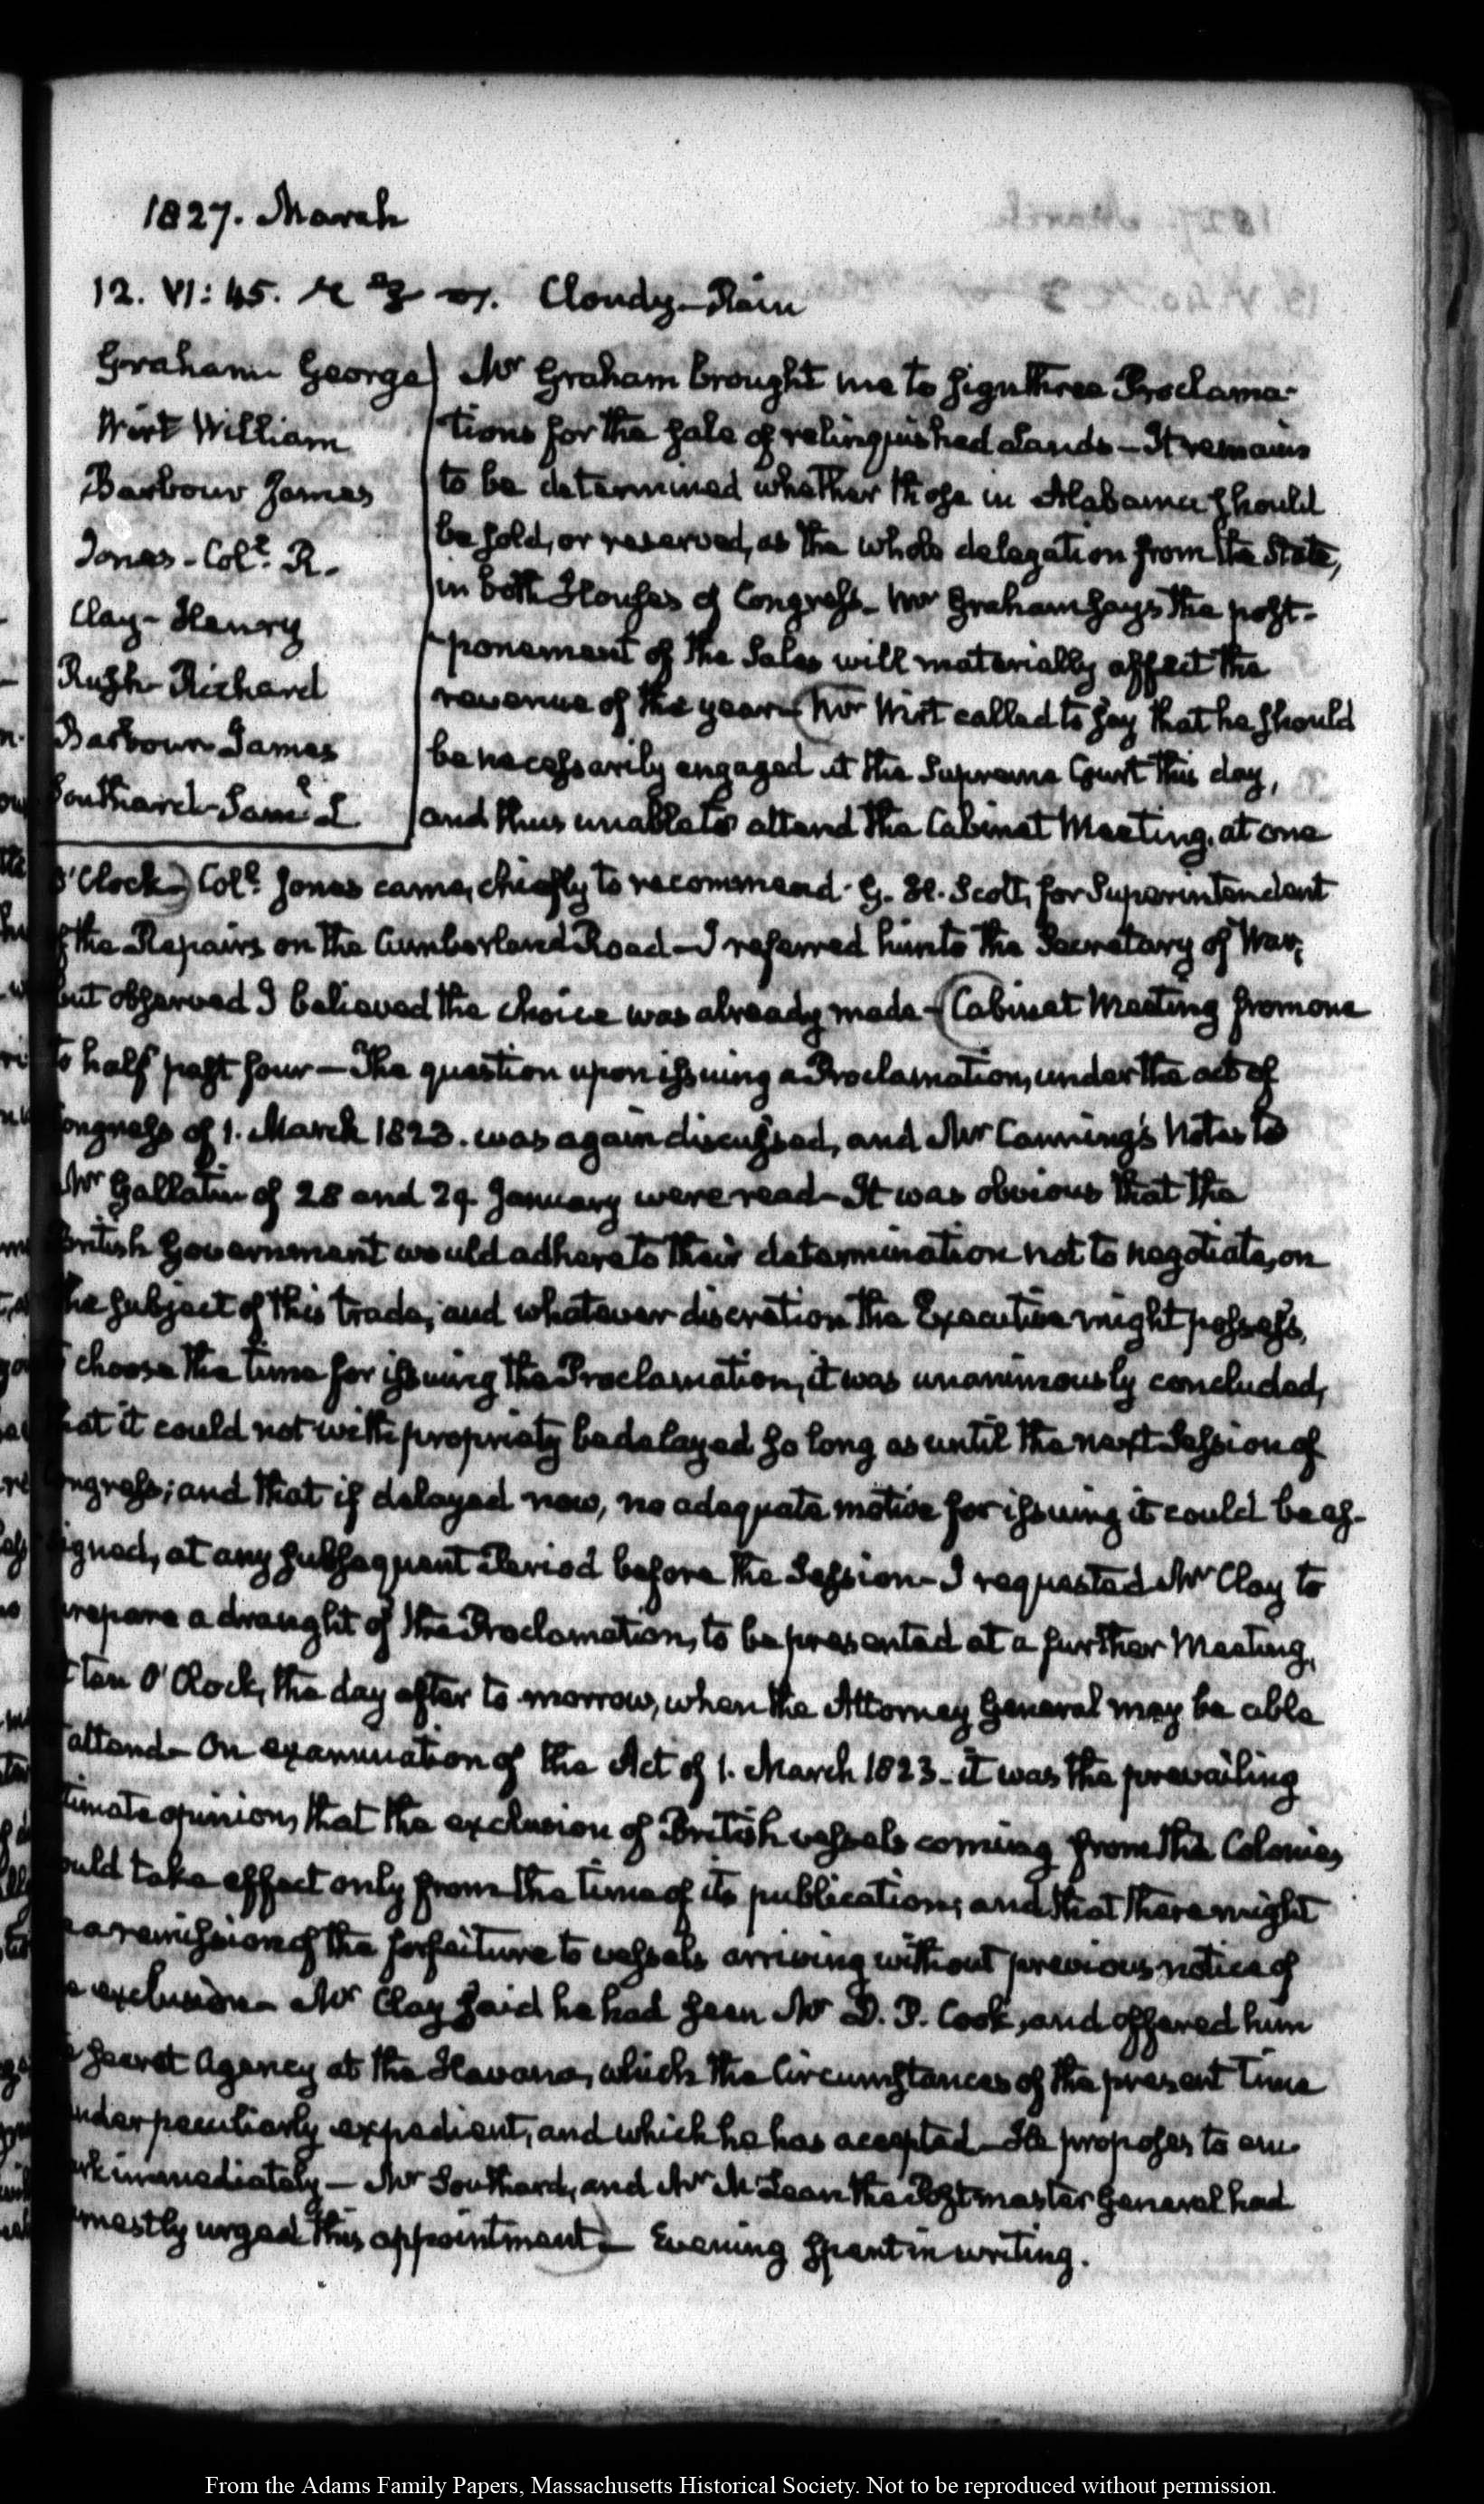 1827. March
12. VI: 45. Cloudy - Rain
Graham George
Wirt William
Barbour James
Jones - Colᵉ. R.
Clay - Henry
Rush - Richard
Barbour - James
Southard - Samˡ L.
Mr Graham brought me to sign three Proclama-
tions for the sale of relinquished Lands - It remains
to be determined whether those in Alabama should
be sold, or reserved, as the whole delegation from the State,
in both Houses of Congress - Mr Graham says the post-
ponement of the Sales will materially affect the
revenue of the year - (Mr Wirt called to say that he should
be necessarily engaged at the Supreme Court this day,
and thus unable to attend the Cabinet Meeting, at one
O'Clock -) Colᵉ. Jones came, chiefly to recommend G. H. Scott, for Superintendent
of the Repairs on the Cumberland Road - I referred him to the Secretary of War;
but observed I believed the choice was already made - (Cabinet Meeting from one
to half past four - The question upon issuing a Proclamation, under the act of
Congress of 1. March 1823. was again discussed, and Mr Canning's Notes to
Mr Gallatin of 28 and 29 January were read - It was obvious that the
British Government would adhere to their determination not to negotiate, on
the subject of this trade; and whatever discretion the Executive might possess,
choose the time for issuing the Proclamation, it was unanimously concluded,
that it could not with propriety be delayed so long as until the next Session of
ongress; and that if delayed now, no adequate motive for issuing it could be as-
signed, at any subsequent Period before the Session - I requested Mr Clay to
prepare a draught of the Proclamation, to be presented at a further Meeting,
at ten O'Clock, the day after to morrow, when the Attorney General may be able
attend - On examination of the Act of 1. March 1823 - it was the prevailing
timate opinion, that the exclusion of British vessels coming from the Colonies
ould take effect only from the time of its publication; and that there might
a remission of the forfeiture to vessels arriving without previous notice of
exclusion - Mr Clay said he had seen Mr D. P. Cook, and offered him
secret Agency at the Havana, which the Circumstances of the present time
nder peculiarly expedient, and which he has accepted - He proposes to em-
ark immediately - Mr Southard, and Mr McLean the Postmaster General had
rnestly urged this appointment) - Evening spent in writing.
From the Adams Family Papers, Massachusetts Historical Society. Not to be reproduced without permission.